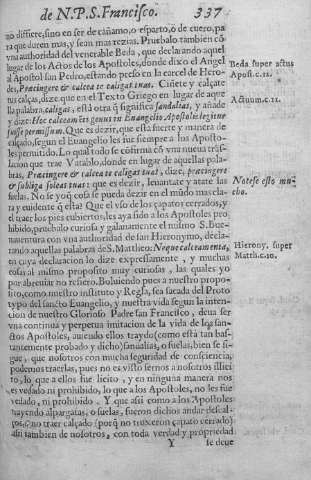 de N.P.S. Francisco. 337
no difiere, sino en ser de cañamo, o esparto, o de cuero, pa
ra que duren mas, y sean mas rezias. Pruebalo tambien cõ
vna authoridad del venerable Beda, que declarando aquel
lugar de los Actos de los Apostoles, donde dixo el Angel
al Apostol san Pedro, estando preso en la carcel de Hero-
des, Præcingere & calcea te caligas tuas. Ciñete y calçate
tus calças, dize, que en el Texto Griego en lugar de aque
lla palabra, caligas, està otra q̃ significa sandalias, y añade
y dize: Hoc calceamẽti genus in Euangelio Apostolis legimus
fuisse permissum. Que es dezir, que esta suerte y manera de
calçado, segun el Euangelio les fue siempre a los Aposto-
les permitido. Lo qual todo se confirma cõ vna nueva tras-
lacion que trae Vatablo, donde en lugar de aquellas pala-
bras, Præcingere & calcea te caligas tuas, dize, præcingere
& subliga soleas tuas: que es dezir, leuantate y atate las
suelas. No se yo q̃ cosa se pueda dezir en el mũdo mas cla-
ra y euidente q̃ esta? Que el vso de los çapatos cerrados, y
el traer los pies cubiertos, les aya sido a los Apostoles pro
hibido, pruebalo curiosa y galanamente el mismo S. Bue-
nauentura con vna authoridad de san Hieronymo, decla-
rando aquellas palabras de S. Mattheo: Neque calceamenta,
en cuya declaracion lo dize expressamente, y muchas
cosas al mismo proposito muy curiosas, las quales yo
por abreuiar no refiero. Boluiendo pues a nuestro propo-
sito, como nuestro instituto y Regla, sea sacada del Proto
typo del sancto Euangelio, y nuestra vida segun la inten-
cion de nuestro Glorioso Padre san Francisco, deua ser
vna continua y perpetua imitacion de la vida de los san-
ctos Apostoles, auiendo ellos traydo (como està tan bas-
tantemente probado y dicho) sandalias, o suelas, bien se si-
gue, que nosotros con mucha seguridad de consciencia,
podemos traerlas, pues no es visto sernos a nosotros illici
to, lo que a ellos fue licito, y en ninguna manera nos
es vedado ni prohibido, lo que a los Apostoles, no les fue
vedado, ni prohibido. Y que assi como a los Apostoles
trayendo alpargatas, o suelas, fueron dichos andar descal-
ços, o no traer calçado (porq̃ no truxeron çapato cerrado)
assi tambien de nosotros, con toda verdad y propriedad
Y se deue
Beda super actus
Apos. c. 12.
Actuum. c. 12.
Notese esto mu-
cho.
Hierony. super
Matth. c. 10.